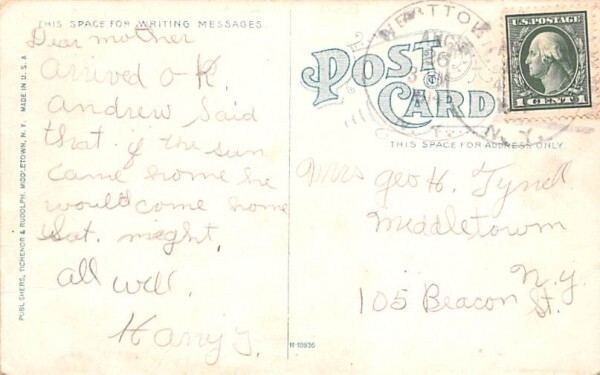 THIS SPACE FOR WRITING MESSAGES
Dear mother
arrived O.K.
andrew said
that if the sun
came home he
would come home
Sat. night.
all well.
Harry T.
PUBLISHERS, TICHENOR & RUDOLPH, MIDDLETOWN, N. Y. MADE IN U. S. A
POST CARD
U.S. POSTAGE
1 CENT 1
THIS SPACE FOR ADDRESS ONLY
Mrs Geo H.
Middletown
N.Y.
105 Beacon St.